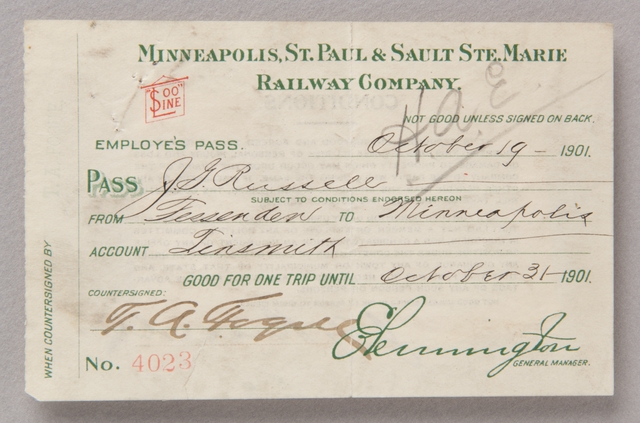 MINNEAPOLIS, ST. PAUL & SAULT STE. MARIE
RAILWAY COMPANY.
"SOO"
LINE
NOT GOOD UNLESS SIGNED ON BACK.
EMPLOYE'S PASS. October 19 - 1901.
PASS J. G. Russell
SUBJECT TO CONDITIONS ENDORSED HEREON
FROM Fessenden TO Minneapolis
ACCOUNT Tinsmith
GOOD FOR ONE TRIP UNTIL October 31 - 1901.
COUNTERSIGNED:
T. A.
E Pennington
GENERAL MANAGER.
No. 4023
WHEN COUNTERSIGNED BY